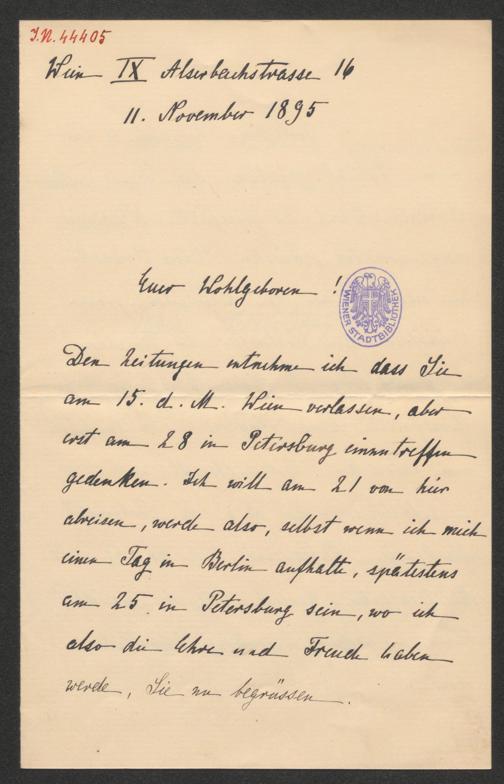 I.N. 44405
Wien IX Alserbachstrasse 16
11. November 1895
Euer Wohlgeboren !
WIENER STADTBIBLIOTHEK
Den Zeitungen entnehme ich dass Sie
am 15. d. M. Wien verlassen, aber
erst am 28 in Petersburg einzutreffen
gedenken. Ich will am 21 von hier
abreisen, werde also, selbst wenn ich mich
einen Tag in Berlin aufhalte, spätestens
am 25 in Petersburg sein, wo ich
also die Ehre und Freude haben
werde, Sie zu begrüssen.